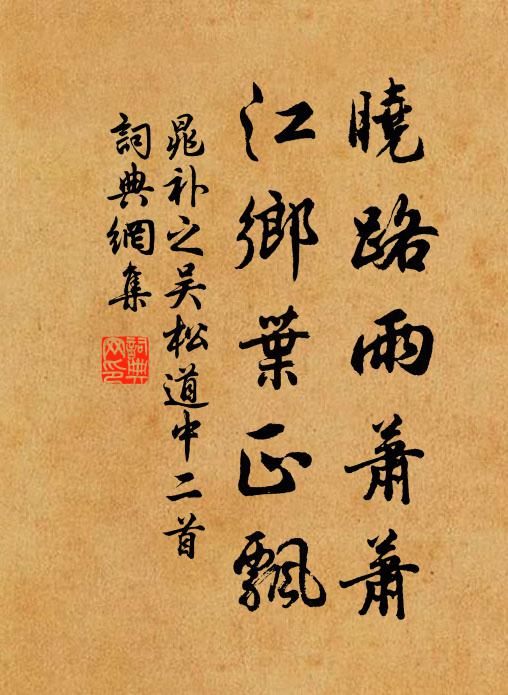 曉路雨蕭蕭
江鄉葉正飄
晁补之吴松道中二首
詞典網集
詞典網印